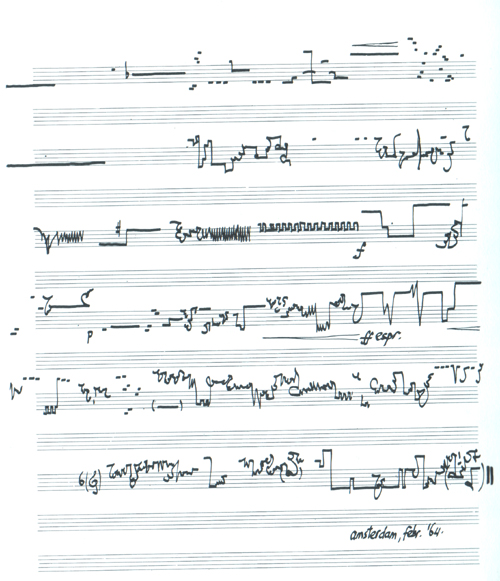 f
p
ff espr.
6(G)
amsterdam, febr. '64.